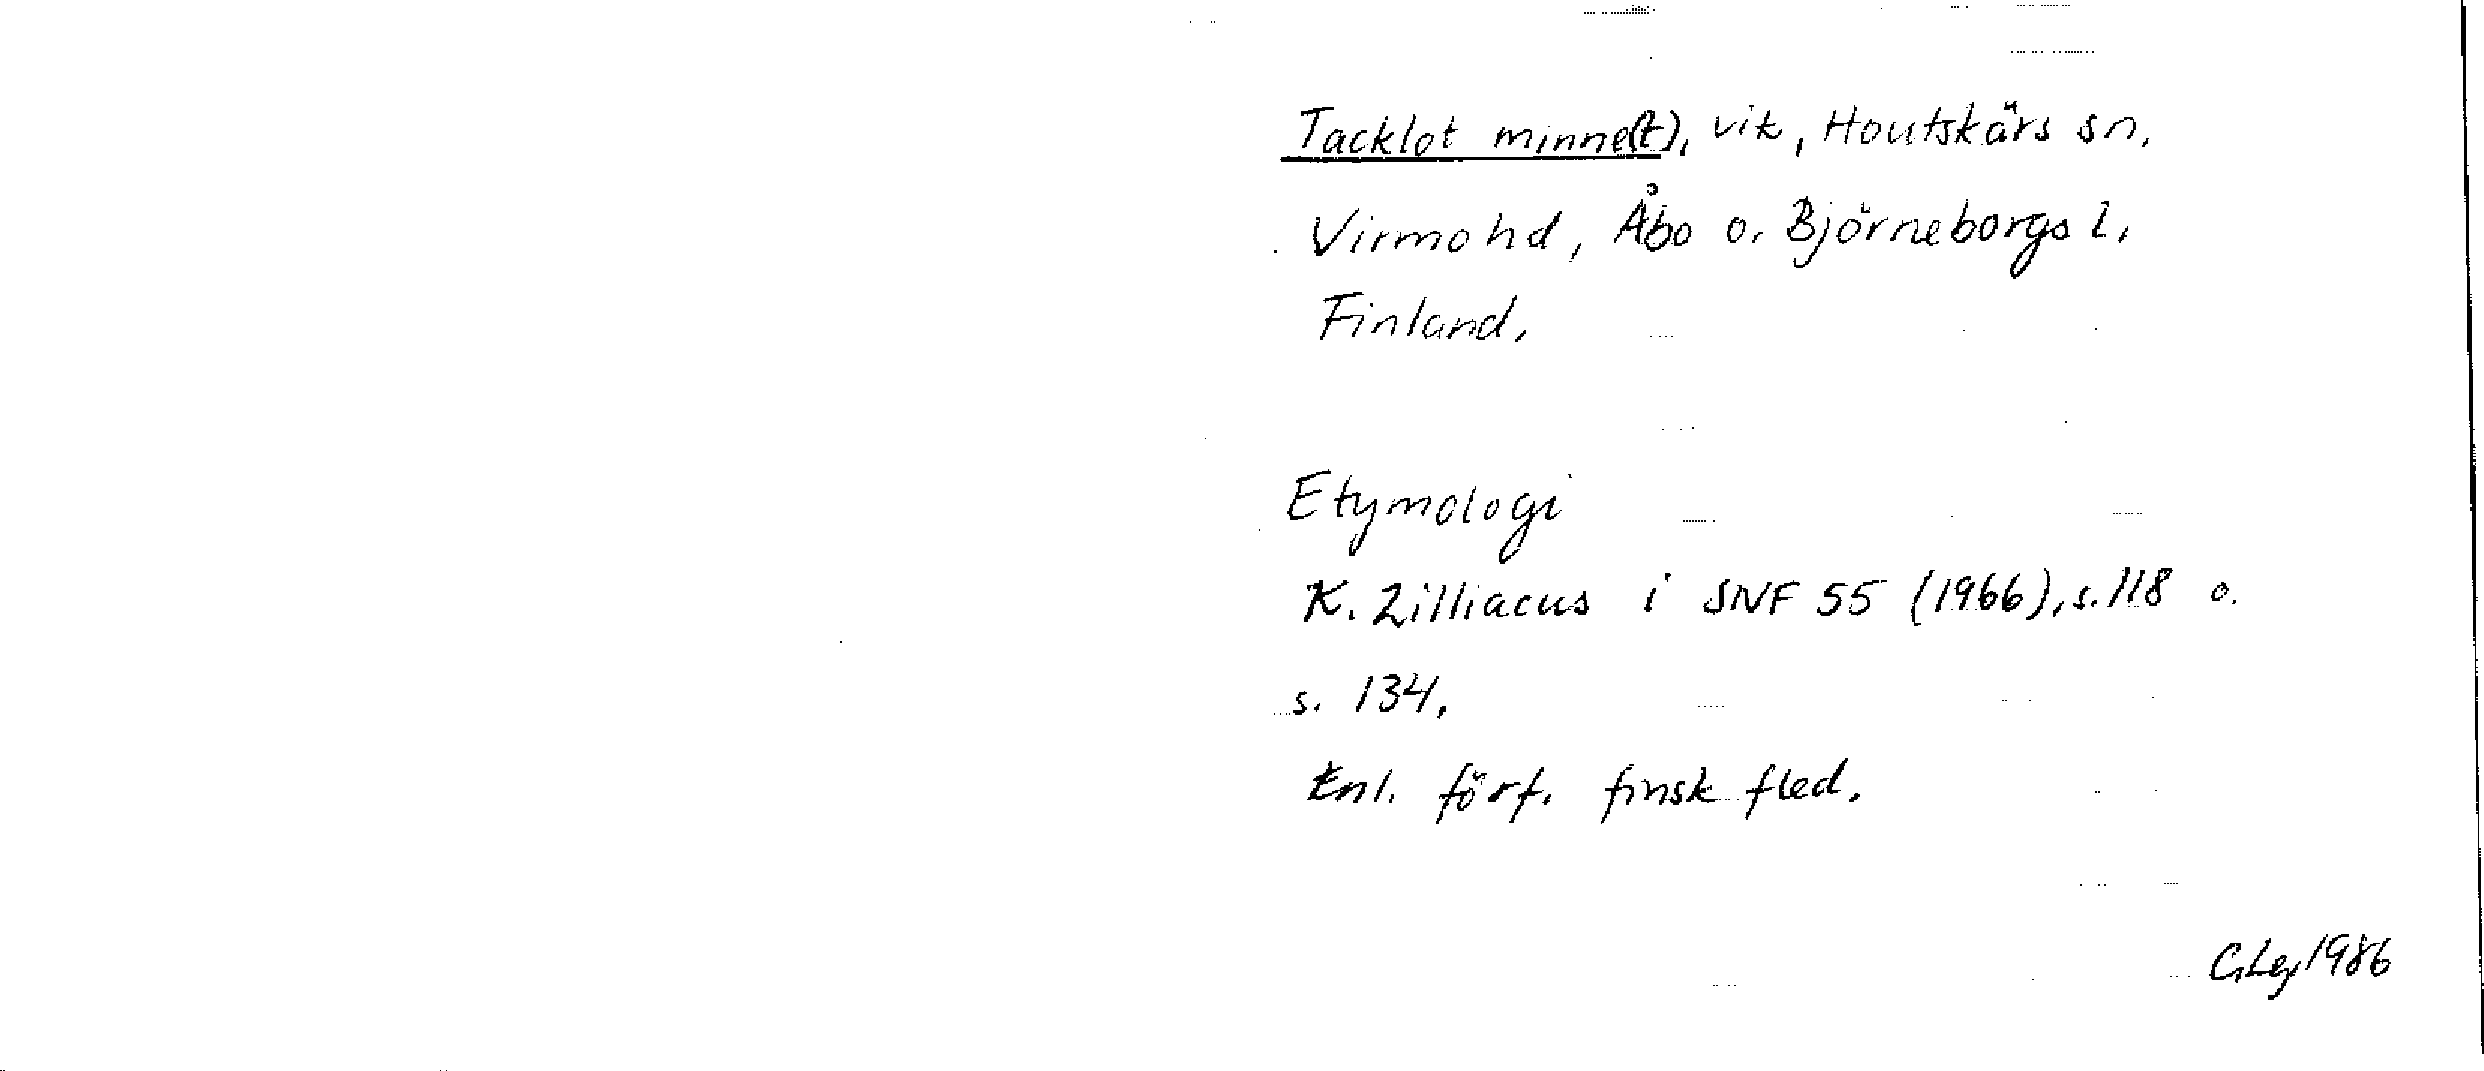 Tacklot minne(t), vik, Houtskärs sn,
Virmo hd, Åbo o. Björneborgs l,
Finland,
Etymologi
K. Zilliacus i SNF 55 (1966), s. 118 o.
s. 134.
Enl. förf. finsk fled.
1986